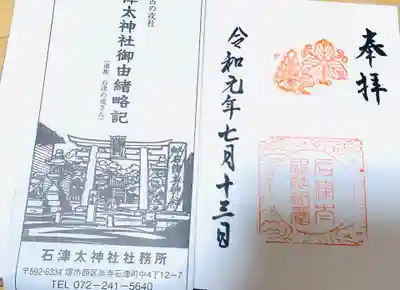 古の戎社
津太神社御由緒略記
(通称 石津の戎さん)
石津太神社社務所
〒592-8334 堺市西区浜寺石津町中4丁12-7
TEL 072-241-5640
奉拝
令和元年七月十三日
石津太
神社社